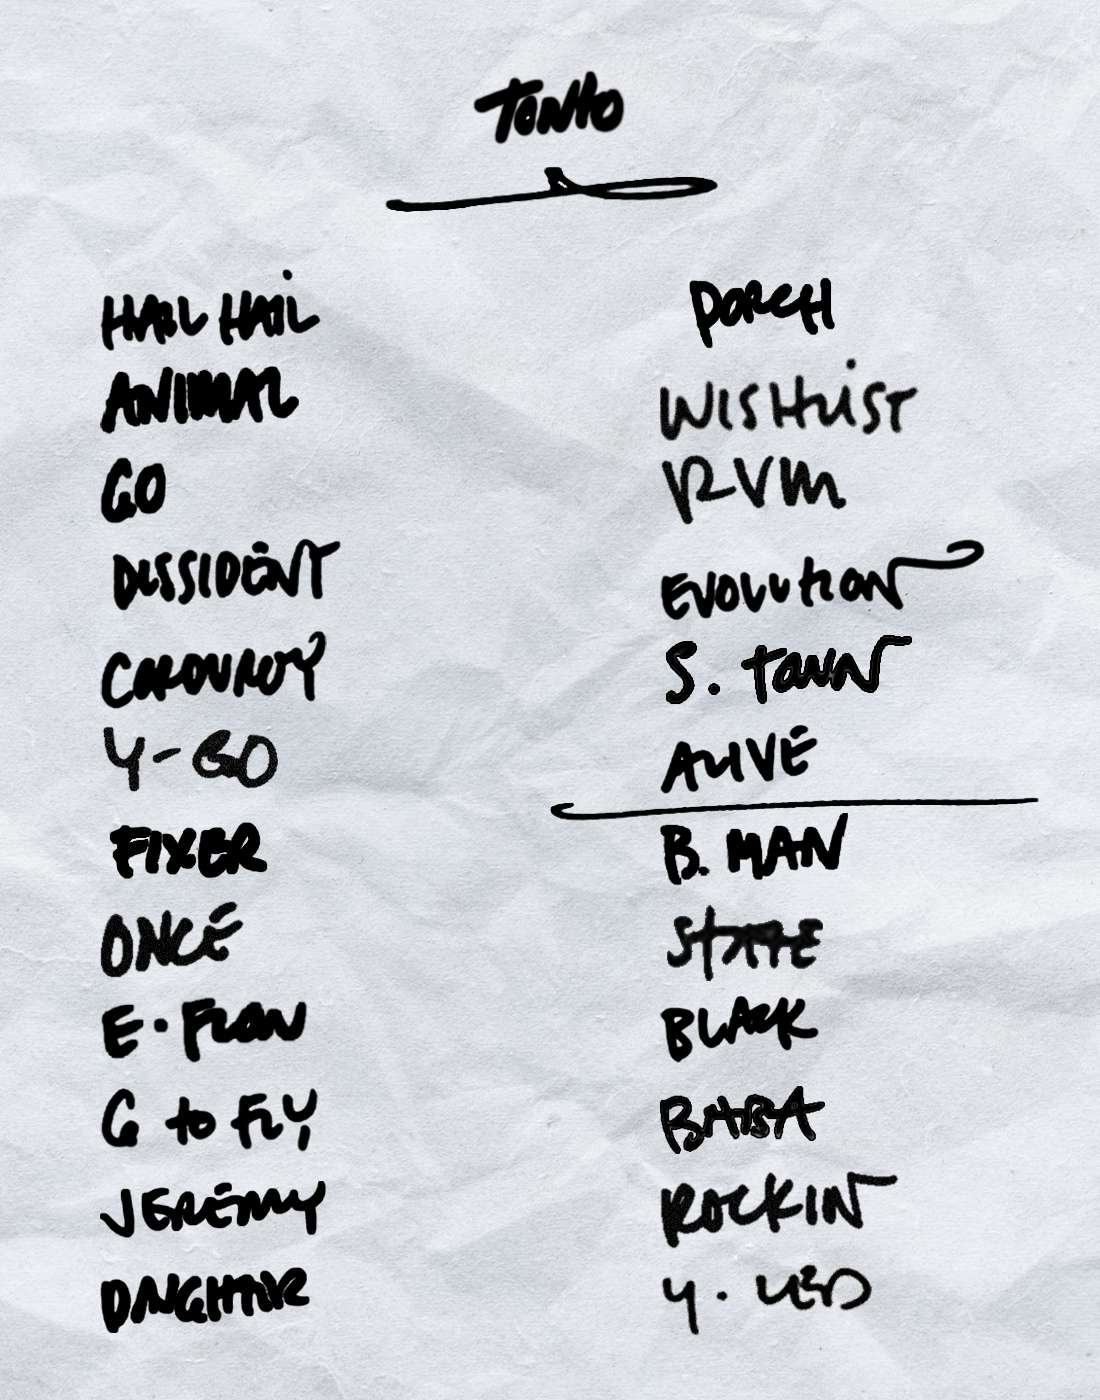 TONTO
HAIL HAIL
ANIMAL
GO
DISSIDENT
CORDUROY
Y-GO
FIXER
ONCE
E. FLOW
G to FLY
JEREMY
DAUGHTER
PORCH
WISHLIST
RVM
EVOLUTION
S. TOWN
ALIVE
B. MAN
STATE
BLACK
BABA
ROCKIN
Y. LED